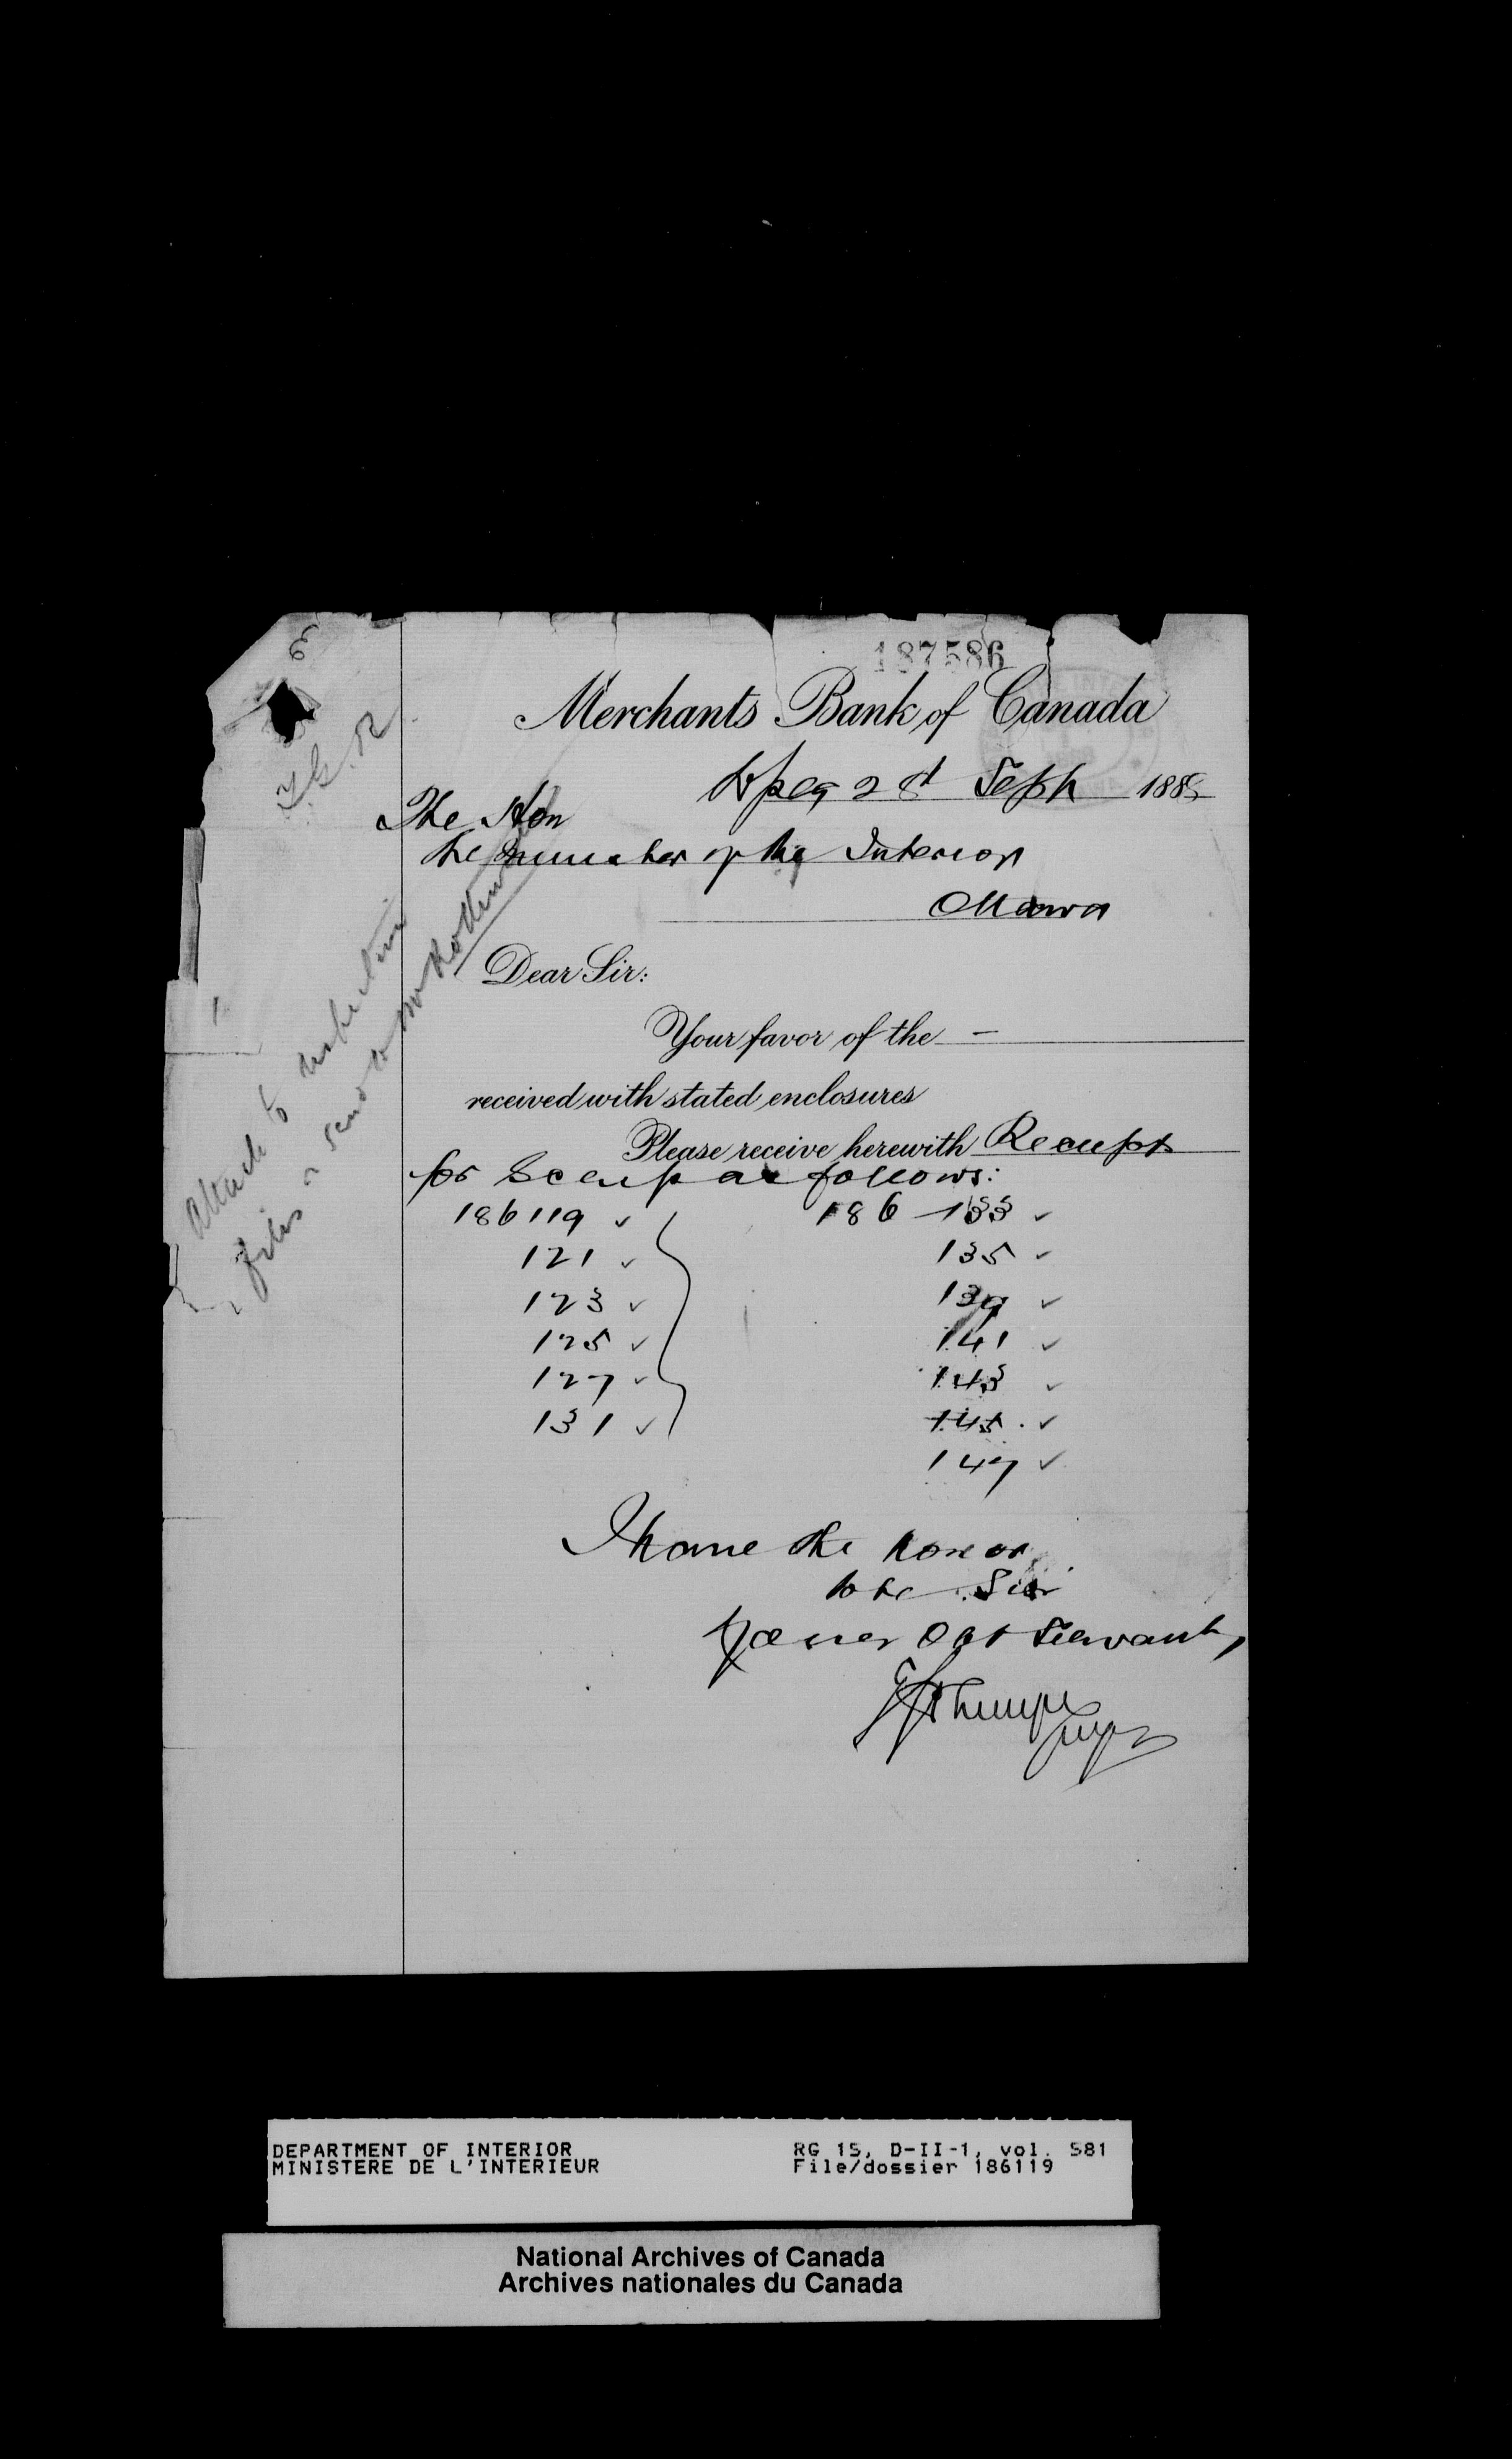 187586
Merchants Bank of Canada
Wpeg 28 Sept 1888
The Hon
the Minister of the Interior
Ottawa
Dear Sir:
Your favor of the —
received with stated enclosures
Please receive herewith Receipts
for Scrip as follows:
186119 ✓ 186 133 ✓
121 ✓ 135 ✓
123 ✓ 139 ✓
125 ✓ 141 ✓
127 ✓ 143 ✓
131 ✓ 145 ✓
147 ✓
I have the honor
to be Sir
Your Obt Servant,
Attach to respective
files & send to Mr
DEPARTMENT OF INTERIOR
MINISTERE DE L'INTERIEUR
RG 15, D-II-1, vol. 581
File/dossier 186119
National Archives of Canada
Archives nationales du Canada